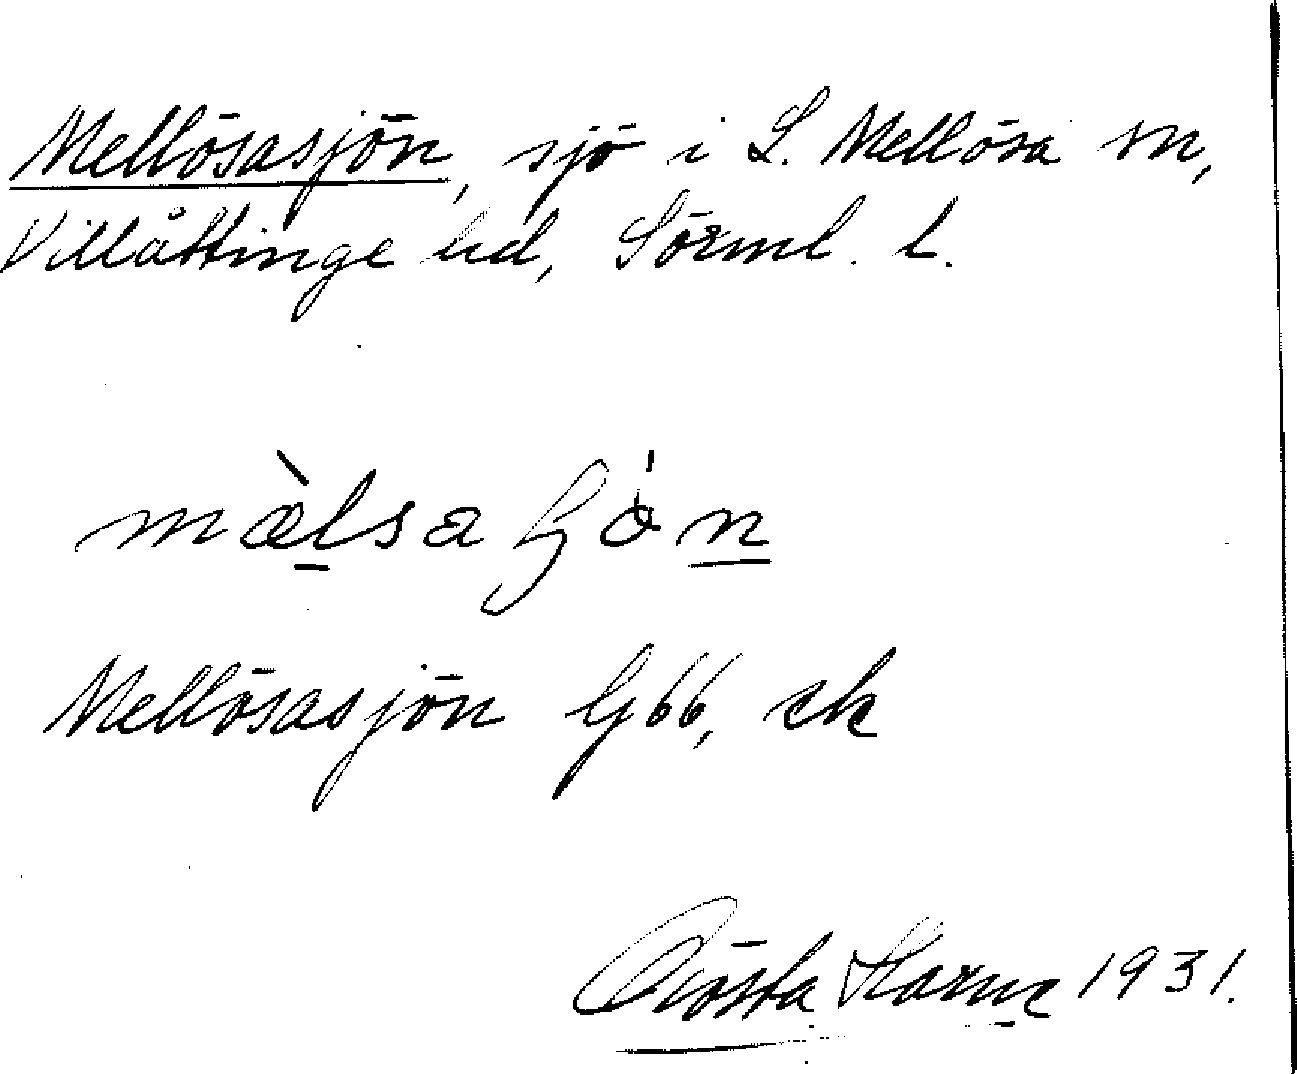 Mellösasjön, sjö i L. Mellösa sn,
Villåttinge hd, Sörml. l.
mæ̀lsa ʃɵ́n
Mellösasjön G66, ek
Gösta 1931.